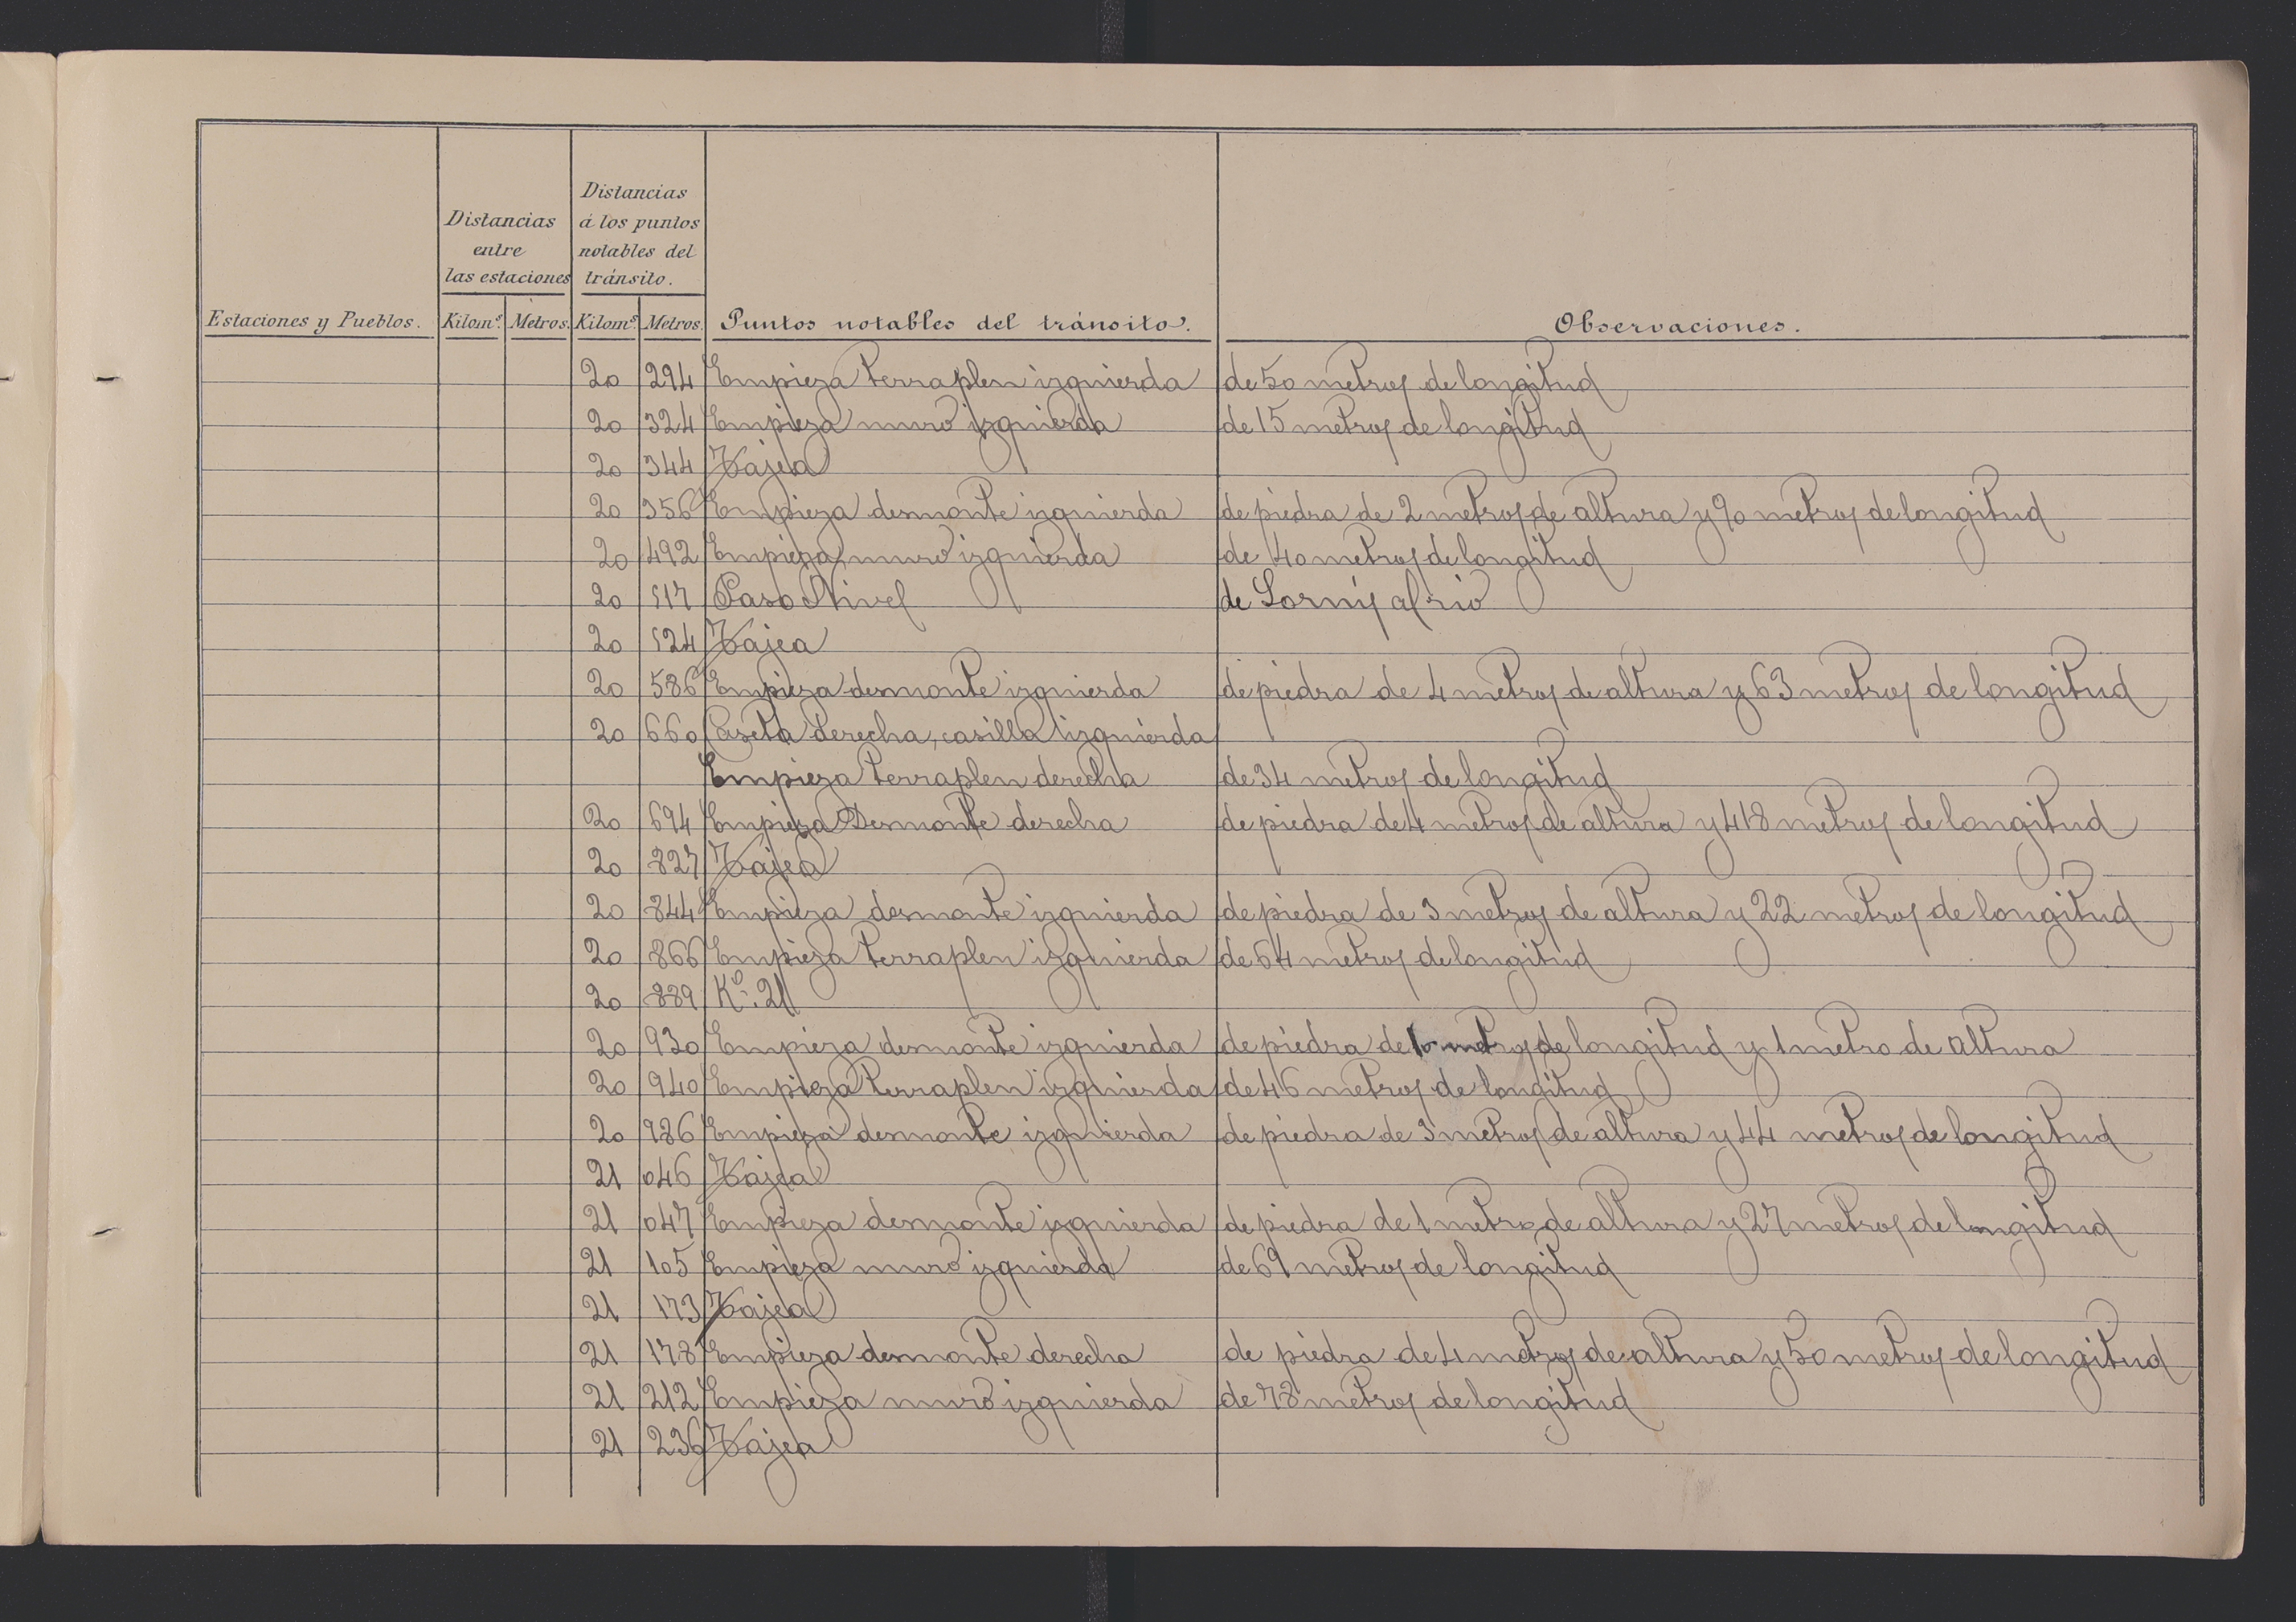 Estaciones y Pueblos.
Distancias
entre
las estaciones
Kilomˢ. Metros.
Distancias
á los puntos
notables del
tránsito.
Kilomˢ. Metros.
Puntos notables del tránsito.
Observaciones.
20 294 Empieza terraplen izquierda de 50 metros de longitud
20 324 Empieza muro izquierda de 15 metros de longitud
20 344 Tajea
20 356 Empieza desmonte izquierda de piedra de 2 metros de altura y 90 metros de longitud
20 492 Empieza muro izquierda de 40 metros de longitud
20 517 Paso Nivel de al rio
20 524 Tajea
20 586 Empieza desmonte izquierda de piedra de 4 metros de altura y 63 metros de longitud
20 660 Caseta derecha, casilla izquierda
Empieza terraplen derecha de 34 metros de longitud
20 694 Empieza Desmonte derecha de piedra de 4 metros de altura y 418 metros de longitud
20 827 Tajea
20 844 Empieza desmonte izquierda de piedra de 3 metros de altura y 22 metros de longitud
20 866 Empieza terraplen izquierda de 64 metros de longitud
20 889 Kº. 21
20 930 Empieza desmonte izquierda de piedra de 10 metros de longitud y 1 metro de altura
20 940 Empieza terraplen izquierda de 46 metros de longitud
20 986 Empieza desmonte izquierda de piedra de 3 metros de altura y 44 metros de longitud
21 046 Tajea
21 047 Empieza desmonte izquierda de piedra de 1 metro de altura y 27 metros de longitud
21 105 Empieza muro izquierda de 69 metros de longitud
21 173 Tajea
21 178 Empieza desmonte derecha de piedra de 4 metros de altura y 50 metros de longitud
21 212 Empieza muro izquierda de 78 metros de longitud
21 236 Tajea